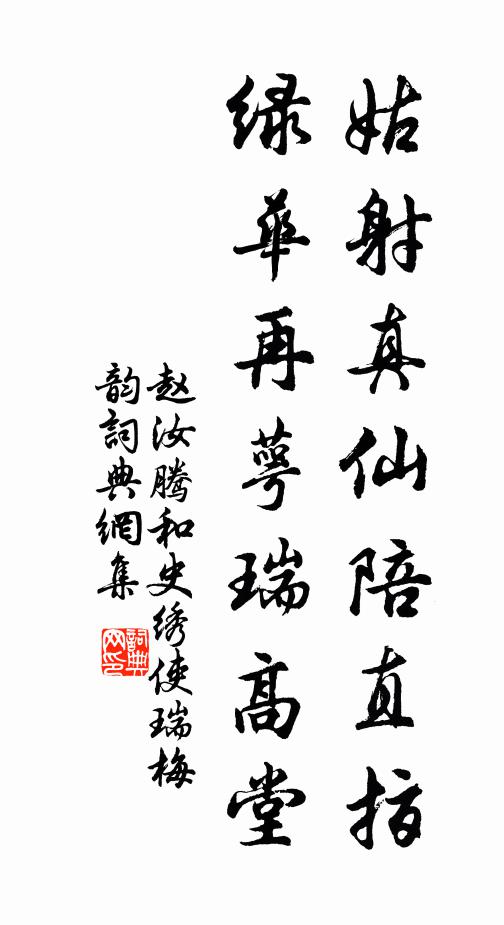 姑射真仙陪直指
绿华再萼瑞高堂
赵汝腾和史绣使瑞梅
韵词典网集
词典网印